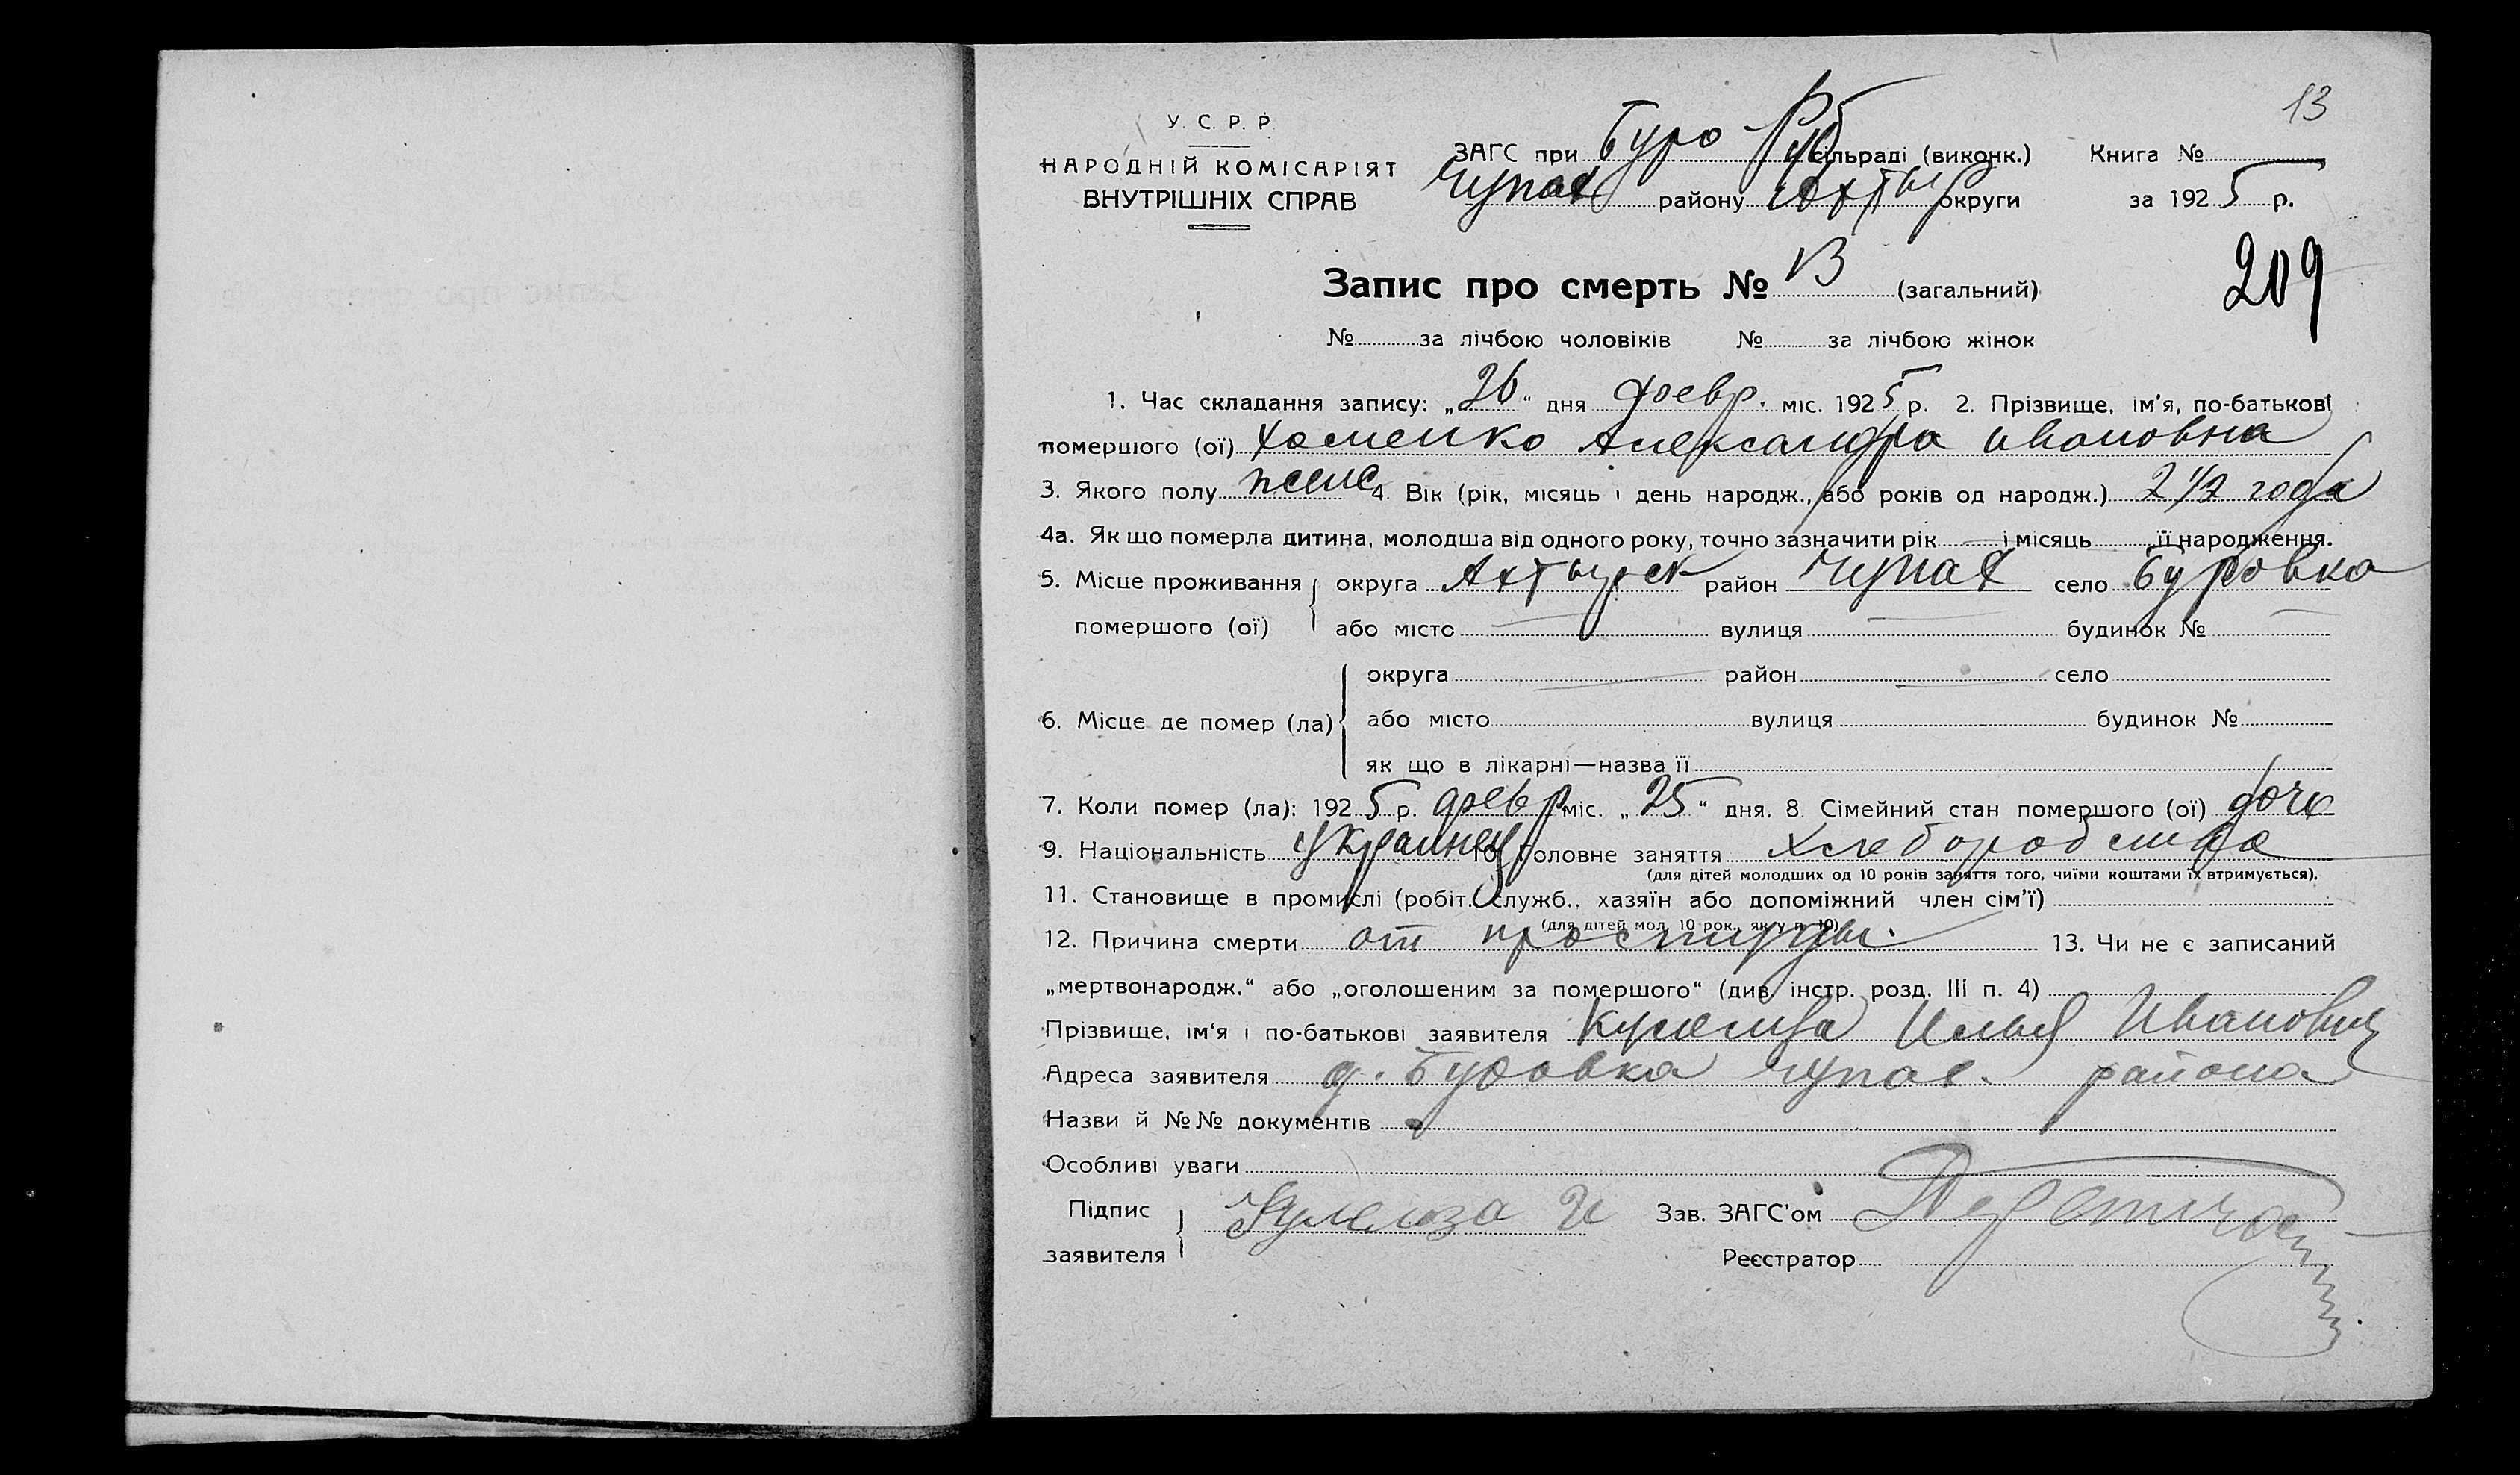 13
У. С. Р. Р.
НАРОДНІЙ КОМІСАРІЯТ
ВНУТРІШНІХ СПРАВ
ЗАГС при Буро Руб сільраді (виконк.) Книга №
Чупах району Ахтыр округи за 1925 р.
Запис про смерть № 13 (загальний)
209
№ за лічбою чоловіків № за лічбою жінок
1. Час складання запису: „26“ дня февр. міс. 1925 р. 2. Прізвище, ім'я, по-батькові
помершого (ої) Хоменко Александра Ивановна
3. Якого полу женс 4. Вік (рік, місяць і день народж., або років од народж.) 2 1/2 года
4а. Як що померла дитина, молодша від одного року, точно зазначити рік і місяць її народження.
5. Місце проживання округа Ахтырск район Чупах село Буровка
помершого (ої) або місто вулиця будинок №
округа район село
6. Місце де помер (ла) або місто вулиця будинок №
як що в лікарні—назва її
7. Коли помер (ла): 1925 р. февр міс. „25“ дня. 8. Сімейний стан помершого (ої) дочь
9. Національність украинец 10. Головне заняття
(для дітей молодших од 10 років заняття того, чиїми коштами їх втримується).
11. Становище в промислі (робіт., служб., хазяїн або допоміжний член сім'ї)
(для дітей мол. 10 рок. як у п. 10)
12. Причина смерти от простуды. 13. Чи не є записаний
„мертвонародж.“ або „оголошеним за помершого“ (див. інстр. розд. III п. 4)
Прізвище, ім'я і по-батькові заявителя Кулемза Илья Иванович
Адреса заявителя д. Буровка Чупах. района
Назви й №№ документів
Особливі уваги
Підпис
заявителя Кулемза И Зав. ЗАГС'ом
Реєстратор